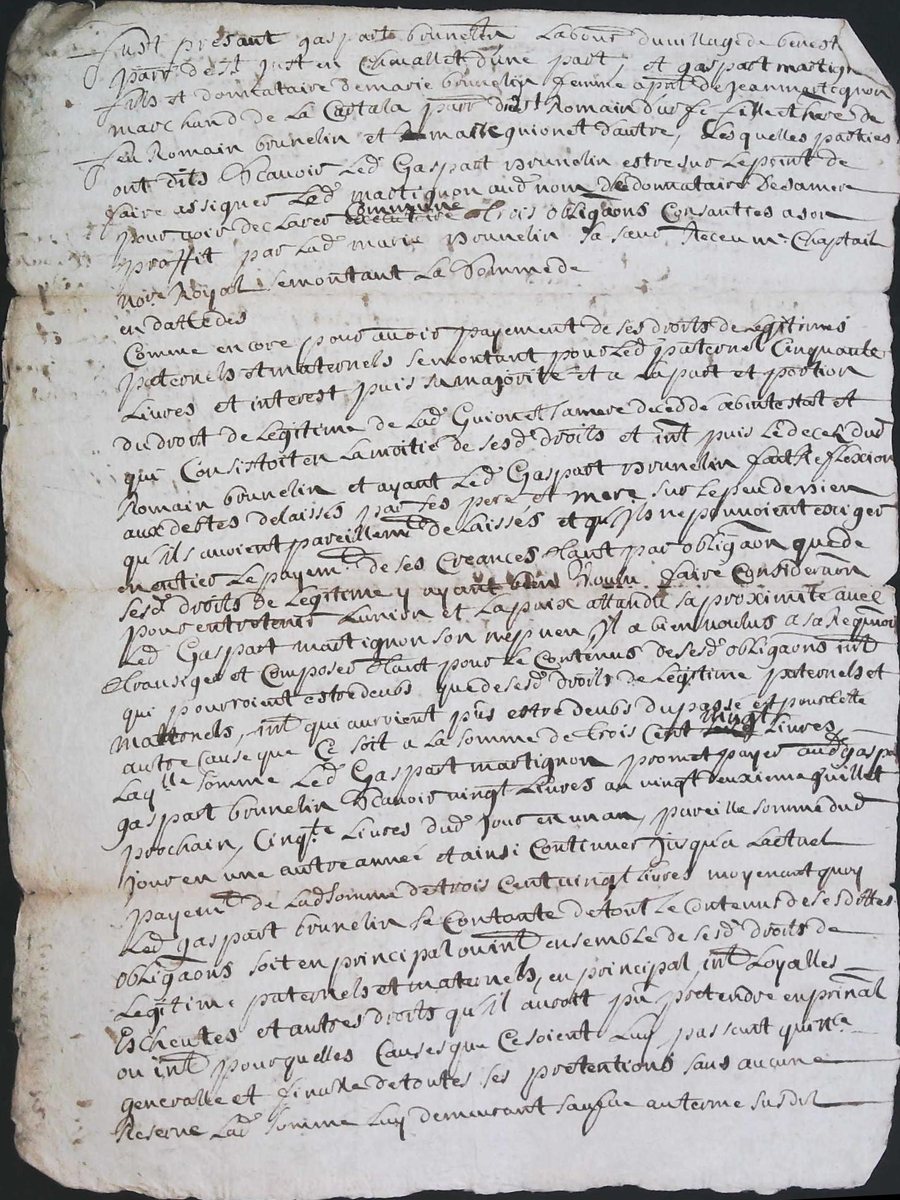 fust présant gaspart brunelin Labour du village de benest
parr de st just en Chevallet d'une part, et gaspart martignon
fils et donnataire de marie brunelin femme a p̄nt de Jean martignon
marchand de La Costala parr dud st Romain durfe fille et here de
feu Romain brunelin et maite guionet d'autre, Lesquelles parties
ont dits Scavoir Led Gaspart brunelin estre sur Le point de
faire assigner Led martignon aud nom de donnataire de sa mere
pour voir declarer commune trois obligaons Consanties a son
proffit par Lad marie brunelin sa sœur Receu me Chaptail
Nore Royal se montant La Somme de
en datte des
Comme encore pour avoir payement de ses droits de Legitimes
paternels et maternels se montant pour Led paternel Cinquante
Livres et interest puis sa majorite et a La part et portion
du droit de Legitime de Lad Guionet sa mere decedde abintestat et
qui Consistoit en La moitié de sesd droits et int puis Le deces dud
Romain brunelin et ayant Led Gaspart brunelin fait Reflexion
aux debtes delaissés par Les pere et mere sur Le peu de bien
qu'ils avoient pareillemt delaissés et qu'ils ne pouvoient exiger
en entier Le payemt de ses Creances tant par obligaon que de
sesd droits de Legitime y ayant bien voulu faire Consideraon
pour entretenir L'union et La paix attandu sa proximité avec
Led Gaspart martignon son nepveu il a bien voulus a sa Requision
transiger et Composer tant pour Le Contenus de sesd obligaons int
qui pourroient estre deubs que de sesd droits de Legitime paternels et
maternels, int qui auroient pus estre deubs du passé et pour tette
autre Cause que Ce soit a La somme de trois Cent vingt Livres
Laqlle somme Led Gaspart martignon promet payer aud gaspar
gaspart brunelin Scavoir vingt Livres au vingt deuxieme Juillet
prochain, Cinqte Livres dud jour en un an, pareille somme dud
jour en une autre année et ainsi Continuer jusqu'a L'actuel
payemt de Lad somme de trois Cent vingt Livres moyenant quoy
Led gaspart brunelin se Contante de tout Le Contenus de sesdittes
obligaons soit en principal ou int ensemble de sesd droits de
Legitime paternels et maternels, en principal, int Loyalles
Escheutes et autres droits qu'il auroit pu pretendre en prinal
ou int pour quelles Causes que Ce soient Luy passant quitte
generalle et finalle de toutes ses pretentions sans aucune
Reserve Lad somme Luy demeurant sauf au terme susdit